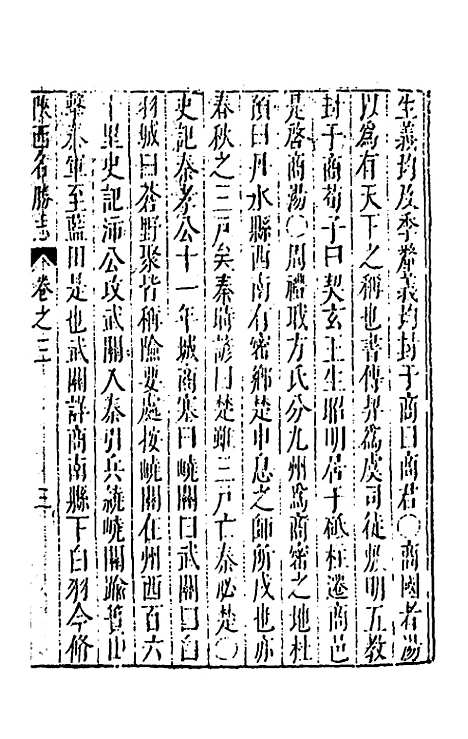 生義均及季釐義均封于商曰商君〇商國者湯
以為有天下之稱也書傳契為虞司徒敷明五教
封于商荀子曰契玄王生昭明居于砥柱遷商邑
是啓商湯〇周禮職方氏分九州為商密之地杜
預曰丹水縣西南有密鄉楚申息之師所戍也亦
春秋之三戸矣秦時諺曰楚雖三戸亡秦必楚〇
史記秦孝公十一年城商塞曰嶢關曰武關曰白
羽城曰蒼野聚皆稱險要處按嶢關在州西百六
十里史記沛公攻武關入秦引兵繞嶢關踰蕢山
擊秦軍至藍田是也武關詳商南縣下白羽今脩
陝西名勝志 卷之三 三